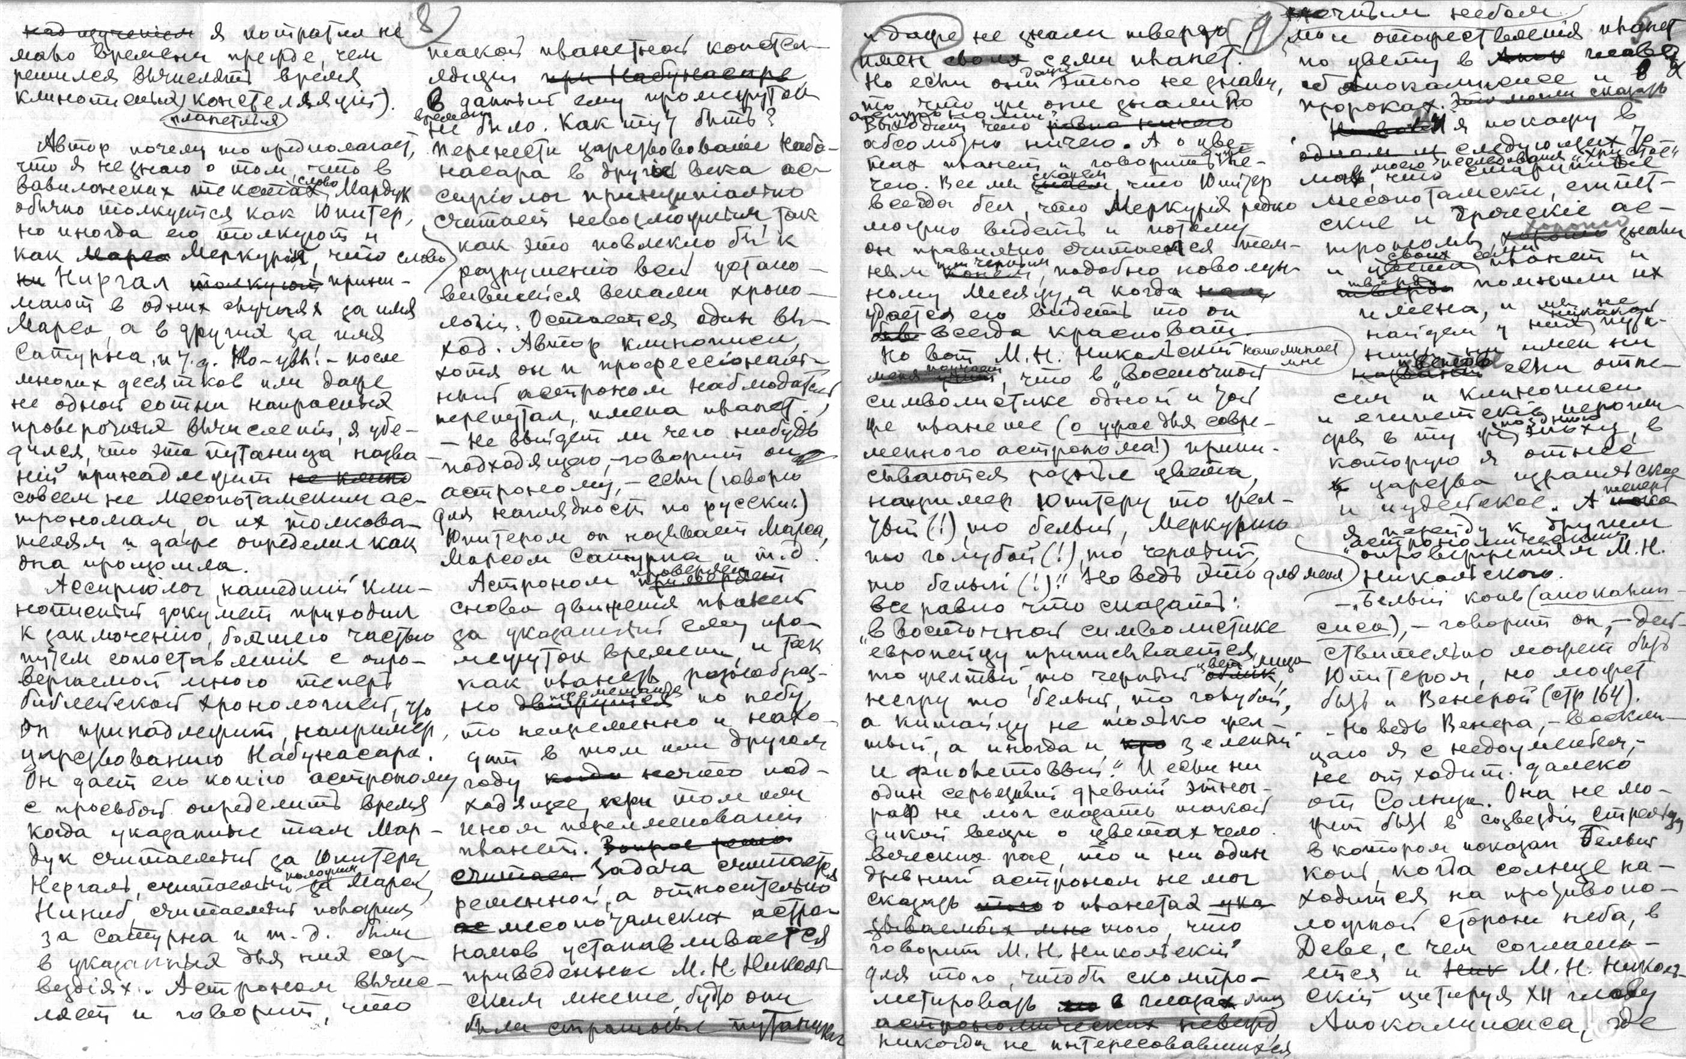 8
я потратил не
мало времени прежде, чем
решился вычислять время
клинописных констелляций).
планетных
Автор почему то предполагает,
что я не знаю о том, что в
вавилонских текстах слово Мардук
обычно толкуется как Юпитер,
но иногда его толкуют и
как Меркурия, что слово
Ниргал прини-
мают в одних случаях за имя
Марса, а в других за имя
Сатурна, и т.д. Но-увы! – после
многих десятков или даже
не одной сотни напрасных
проверочных вычислений, я убе-
дился, что эта путаница назва-
ний принадлежит
совсем не месопотамским ас-
трономам, а их толкова-
телям и даже определил как
она произошла.
Ассириолог, нашедший кли-
нописный документ приходил
к заключению, большею частью
путем сопоставления с опро-
вергаемой мною теперь
библейской хронологией, что
он принадлежит, например,
царствованию Набунасара.
Он дает его копию астроному
с просьбой определить время
когда указанные там Мар-
дук считаемый за Юпитера
Нергал, считаемый за Марса,
Ниниб, считаемый поводимому
за Сатурна и т.д. были
в указанных для них соз-
вездиях. Астроном вычис-
ляет и говорит, что
такой планетной констел-
ляции при Набунасаре
в данный ему промежуток
времени
не было. Как тут быть?
Перенести царствование Набо-
насара в другие века ас-
сириолог принципиально
считает невозможным, так
как это повлекло бы к
разрушению всей устано-
вившейся веками хроно-
логии. Остается один вы-
ход. Автор клинописи,
хотя он и профессиональ-
ный астроном наблюдатель,
перепутал, имена планет.
– Не выйдет ли чего нибудь
подходящего, – говорит он
астроному, – если (говорю
для наглядности по русски)
Юпитером он называет Марса,
Марсом Сатурна и т.д.
проверяет
Астроном
снова движения планет
за указанный ему про-
межуток времени, и так
как планеты разнообраз-
перемещаются
но по небу
то непременно и нахо-
дит в том или другом
году нечто под-
ходящее, при том или
ином переименовании
планет.
Задача считается
решенной, а относительно
месопотамских астро-
номов устанавливается
приведенное М.Н. Николь-
ским мнение, будто они
были страшные путаники
9
и даже не знали твердо
имен семи планет.
Но если они даже этого не знали,
то что же они знали по
астрономии?
абсолютно ничего. А о цве-
тах планет и говорить не-
чего. Все мы скажем, что Юпитер
всегда бел, что Меркурия редко
можно видеть и потому
он правильно считается тем-
ным подобно новолун-
ному месяцу, а когда
удается его видеть то он
всегда красноват.
Но вот М.Н. Никольский напоминает
мне
что в "восточной
символистике одной и той
же планете (о ужас для совре-
менного астронома!) припи-
сываются разные цвета,
например Юпитеру то жел-
тый (!) то белый, Меркурию
то голубой (!) то черный,
то белый (!)" Но ведь это для меня
все равно что сказать:
"в восточной символистике
европейцу приписывается
то желтый то черный цвет лица
негру то белый, то голубой,
а китайцу не только жел-
тый, а иногда и зеленый
и фиолетовый." И если ни
один серьезный древний этног-
раф не мог сказать такой
дикой вещи о цветах чело-
веческих рас, то и ни один
древний астроном не мог
сказать о планетах
того, что
говорит М.Н. Никольский
для того, чтобы скомпро-
метировать в глазах лиц
астрономических
никогда не интересовавшихся
ночным небом
мои отожествления планет
по цвету в
Апокалипсисе и в
пророках.
я покажу в
следующих
моего исследования "Христос"
что старинные
месопотамские, египет-
ские и греческие ас-
трономы хорошо знали
и цвета своих планет и
твердо помнили их
имена, и мы не
найдем у них никакой пута-
ницы ни имен ни
цветов если отне-
сем и клинописи
и египетские иерогли-
фы в ту же позднюю эпоху, в
которую я отнес
царства израильское
и иудейское. А теперь
я перейду к другим
"астрономическим
опровержениям" М.Н.
Никольского.
– "Белый конь (апокалип-
сиса), – говорит он, – дей-
ствительно может быть
Юпитером, но может
быть и Венерой (стр 164).
– Но ведь Венера, – воскли-
цаю я с недоумением, –
не отходит далеко
от Солнца. Она не мо-
жет быть в созвездии Стрельца
в котором показан Белый
конь, когда солнце на-
ходится на противопо-
ложной стороне неба, в
Деве, с чем соглаша-
ется и М.Н. Николь-
ский цитируя XII главу
Апокалипсиса, где